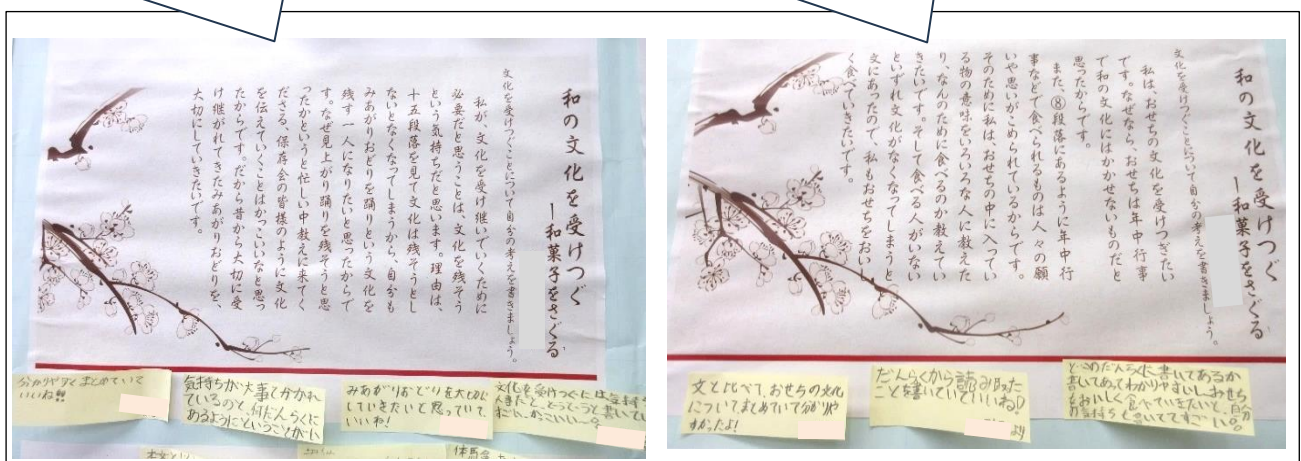 和の文化を受けつぐ
―和菓子をさぐる
文化を受けつぐことについて自分の考えを書きましょう。
私が、文化を受け継いでいくために
必要だと思うことは、文化を残そう
という気持ちだと思います。理由は、
十五段落を見て文化は残そうとし
ないとなくなってしまうから、自分も
みあがりおどりを踊りという文化を
残す一人になりたいと思ったからで
す。なぜ見上がり踊りを残そうと思
ったかというと忙しい中教えに来てく
ださる、保存会の皆様のように文化
を伝えていくことはかっこいいなと思っ
たからです。だから昔から大切に受
け継がれてきたみあがりおどりを、
大切にしていきたいです。
分かりやすくまとめていて
いいね!!
気持ちが大事とかかれ
ているので、何だんらくに
あるようにということがいい
みあがりおどりを大切に
していきたいと思っていて
いいね!
文化を受けつぐには気持ち
かっこいい〜
和の文化を受けつぐ
―和菓子をさぐる
文化を受けつぐことについて自分の考えを書きましょう。
私は、おせちの文化を受けつぎたい
です。なぜなら、おせちは年中行事
で和の文化にはかかせないものだと
思ったからです。
また、⑧段落にあるように年中行
事などで食べられるものは人々の願
いや思いがこめられているからです。
そのために私は、おせちの中に入ってい
る物の意味をいろいろな人に教えた
り、なんのために食べるのか教えてい
きたいです。そして食べる人がいない
といずれ文化がなくなってしまうと
文にあったので、私もおせちをおいし
く食べていきたいです。
文と比べて、おせちの文化
についてまとめていて分かりや
すかったよ!
だんらくから読み取った
ことを書いていていいね!
より
どこのだんらくに書いてあるか
書いてあってわかりやすいし、おせち
をおいしく食べていきたいと、自分の
気持ちも書いててすごい。